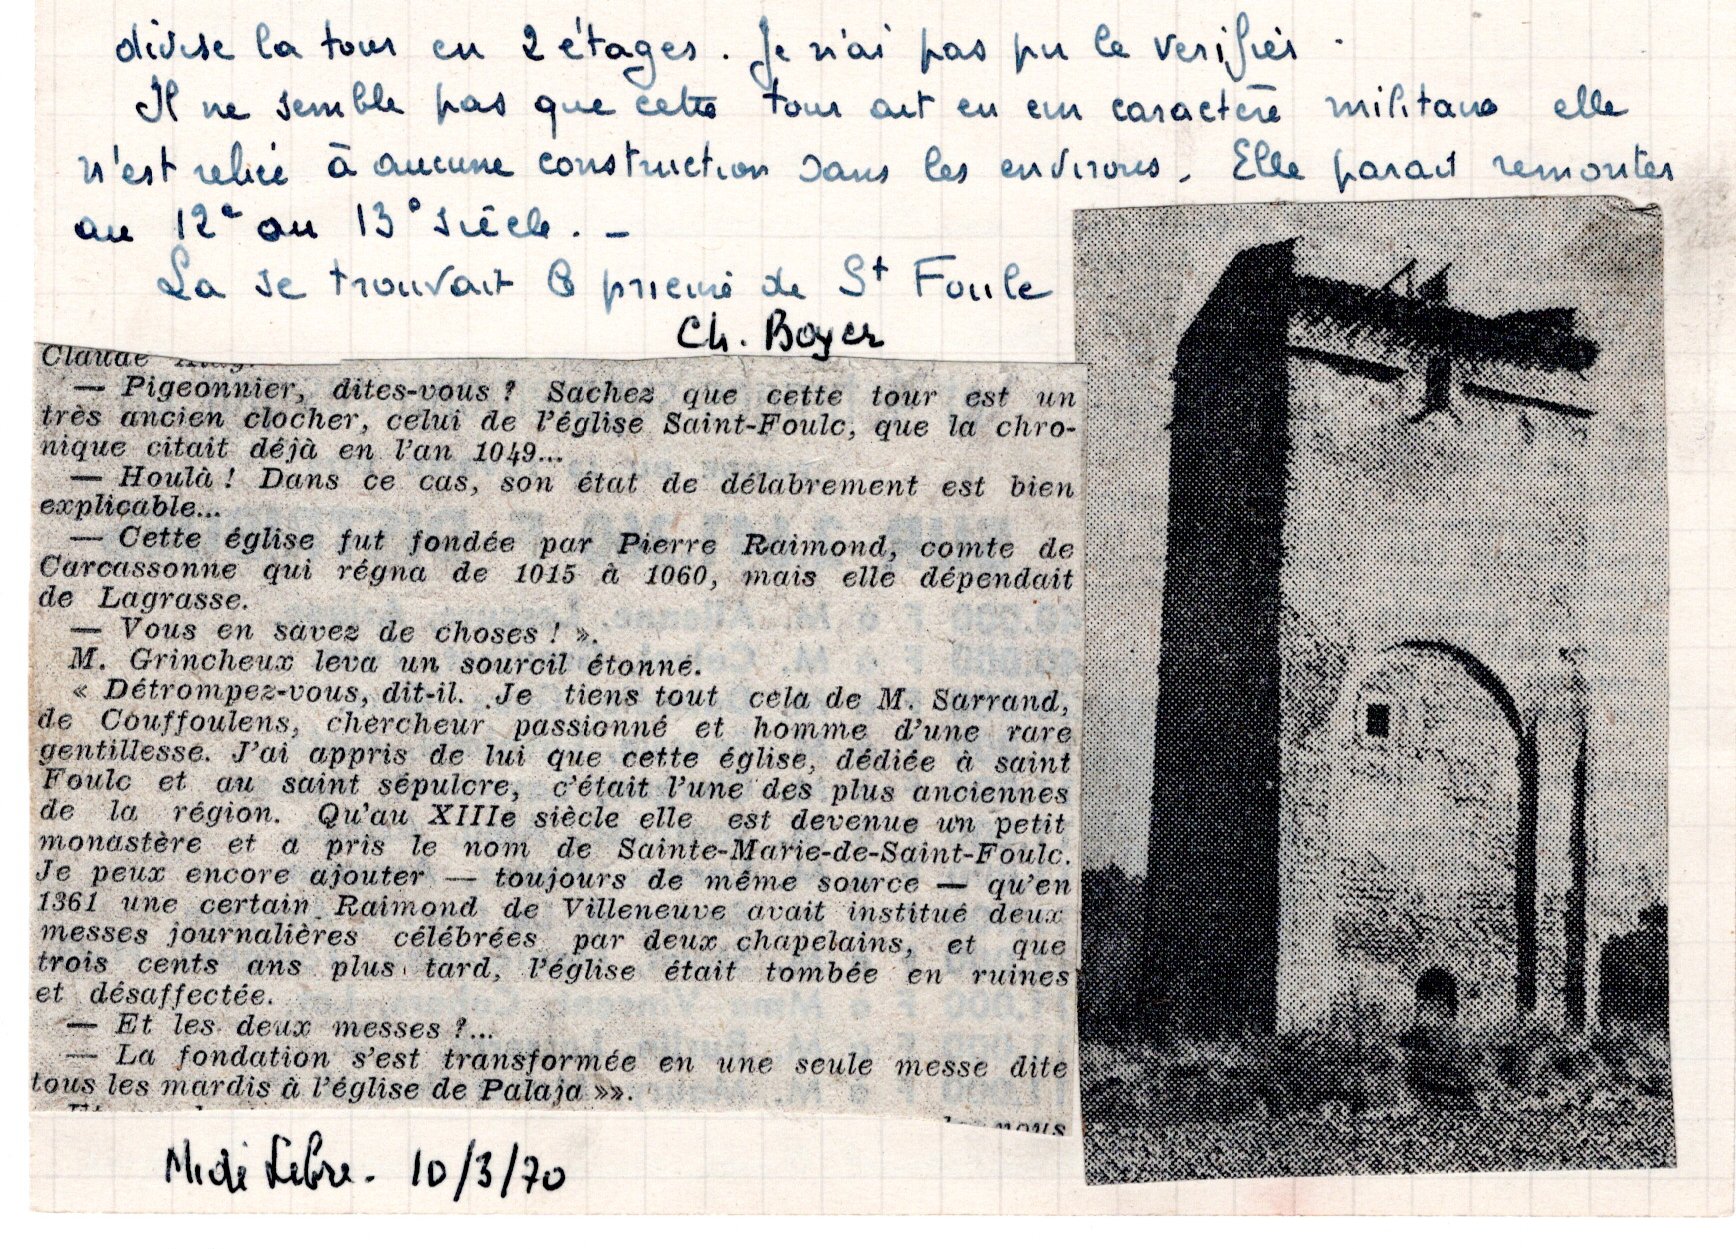 divise la tour en 2 étages. Je n'ai pas pu le verifier.
Il ne semble pas que cette tour ait eu un caractère militaire elle
n'est reliée à aucune construction dans les environs. Elle parait remonter
au 12e ou 13e siècle. _
La se trouvait le prieuré de St Foulc
Ch. Boyer
Claude
— Pigeonnier, dites-vous ? Sachez que cette tour est un
très ancien clocher, celui de l'église Saint-Foulc, que la chro-
nique citait déjà en l'an 1049...
— Houlà ! Dans ce cas, son état de délabrement est bien
explicable...
— Cette église fut fondée par Pierre Raimond, comte de
Carcassonne qui régna de 1015 à 1060, mais elle dépendait
de Lagrasse.
— Vous en savez de choses ! ».
M. Grincheux leva un sourcil étonné.
« Détrompez-vous, dit-il. Je tiens tout cela de M. Sarrand,
de Couffoulens, chercheur passionné et homme d'une rare
gentillesse. J'ai appris de lui que cette église, dédiée à saint
Foulc et au saint sépulcre, c'était l'une des plus anciennes
de la région. Qu'au XIIIe siècle elle est devenue un petit
monastère et a pris le nom de Sainte-Marie-de-Saint-Foulc.
Je peux encore ajouter — toujours de même source — qu'en
1361 une certain Raimond de Villeneuve avait institué deux
messes journalières célébrées par deux chapelains, et que
trois cents ans plus tard, l'église était tombée en ruines
et désaffectée.
— Et les deux messes ?...
— La fondation s'est transformée en une seule messe dite
tous les mardis à l'église de Palaja »».
nous
Midi Libre. 10/3/70